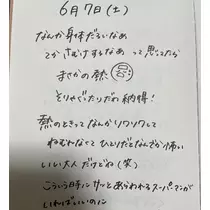 6月7日(土)
なんか身体だるいなぁ
てか さむけするなぁ って思ってたら
まさかの熱
そりゃだったりだわ 納得!
熱のときってなんかソワソワして
ねむれなくて ひとりだとなんだか怖い
いい大人だけどね(笑)
こういう時に サッとあらわれるスーパーマンが
いればいいのに